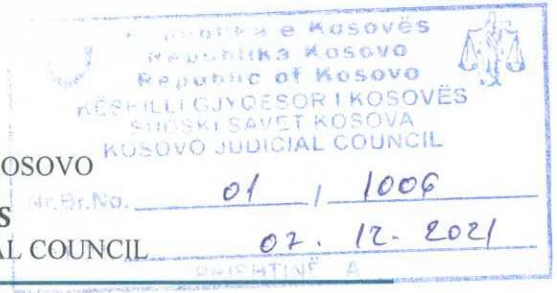 Republika e Kosovës
Republika Kosova
Republic of Kosovo
KËSHILLI GJYQËSOR I KOSOVËS
SUDSKI SAVET KOSOVA
KOSOVO JUDICIAL COUNCIL
OSOVO
Nr.Br.No. 01 / 1006
S
AL COUNCIL 07. 12. 2021
PRISHTINË A